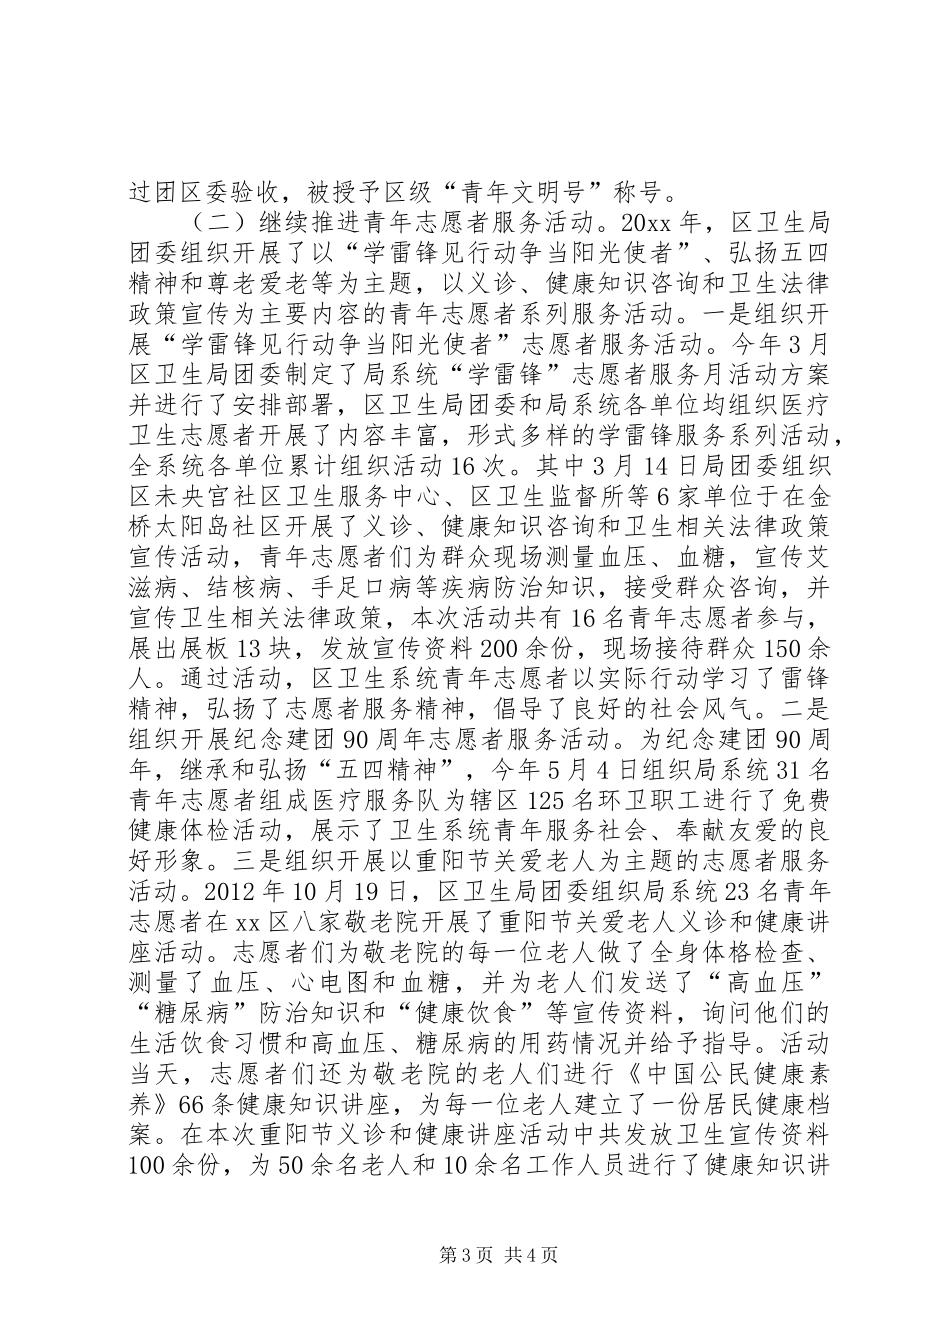 过团区委验收，被授予区级“青年文明号”称号。
（二）继续推进青年志愿者服务活动。20xx 年，区卫生局
团委组织开展了以“学雷锋见行动争当阳光使者”、弘扬五四
精神和尊老爱老等为主题，以义诊、健康知识咨询和卫生法律
政策宣传为主要内容的青年志愿者系列服务活动。一是组织开
展“学雷锋见行动争当阳光使者”志愿者服务活动。今年 3 月
区卫生局团委制定了局系统“学雷锋”志愿者服务月活动方案
并进行了安排部署，区卫生局团委和局系统各单位均组织医疗
卫生志愿者开展了内容丰富，形式多样的学雷锋服务系列活动，
全系统各单位累计组织活动 16 次。其中 3 月 14 日局团委组织
区未央宫社区卫生服务中心、区卫生监督所等 6 家单位于在金
桥太阳岛社区开展了义诊、健康知识咨询和卫生相关法律政策
宣传活动，青年志愿者们为群众现场测量血压、血糖，宣传艾
滋病、结核病、手足口病等疾病防治知识，接受群众咨询，并
宣传卫生相关法律政策，本次活动共有 16 名青年志愿者参与，
展出展板 13 块，发放宣传资料 200 余份，现场接待群众 150 余
人。通过活动，区卫生系统青年志愿者以实际行动学习了雷锋
精神，弘扬了志愿者服务精神，倡导了良好的社会风气。二是
组织开展纪念建团 90 周年志愿者服务活动。为纪念建团 90 周
年，继承和弘扬“五四精神”，今年 5 月 4 日组织局系统 31 名
青年志愿者组成医疗服务队为辖区 125 名环卫职工进行了免费
健康体检活动，展示了卫生系统青年服务社会、奉献友爱的良
好形象。三是组织开展以重阳节关爱老人为主题的志愿者服务
活动。2012 年 10 月 19 日，区卫生局团委组织局系统 23 名青年
志愿者在 xx 区八家敬老院开展了重阳节关爱老人义诊和健康讲
座活动。志愿者们为敬老院的每一位老人做了全身体格检查、
测量了血压、心电图和血糖，并为老人们发送了“高血压”
“糖尿病”防治知识和“健康饮食”等宣传资料，询问他们的
生活饮食习惯和高血压、糖尿病的用药情况并给予指导。活动
当天，志愿者们还为敬老院的老人们进行《中国公民健康素
养》66 条健康知识讲座，为每一位老人建立了一份居民健康档
案。在本次重阳节义诊和健康讲座活动中共发放卫生宣传资料
100 余份，为 50 余名老人和 10 余名工作人员进行了健康知识讲
第 3 页 共 4 页